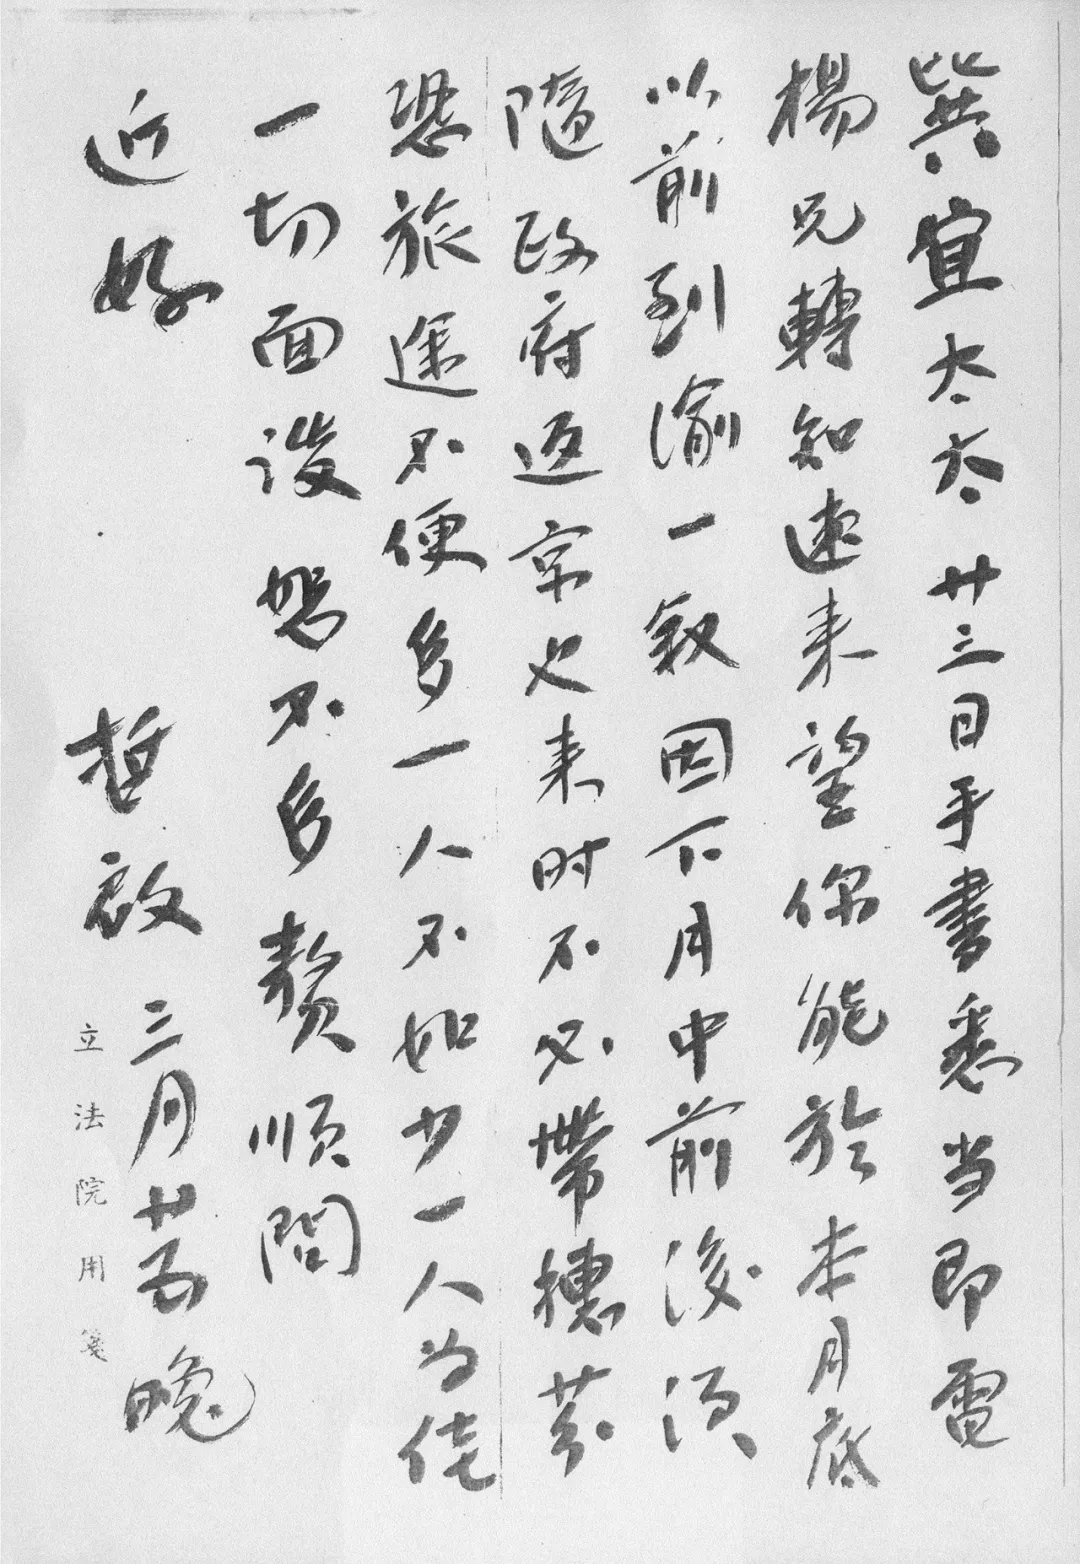 巽宜太太廿三日手書悉当即電
楊兄轉知速来望你能於本月底
以前到渝一敘因下月中前後須
隨政府返京也来时不必帶穗芬
恐旅途不便多一人不如少一人为佳
一切面談恕不多贅順問
近好
哲啟三月廿五晚
立法院用箋